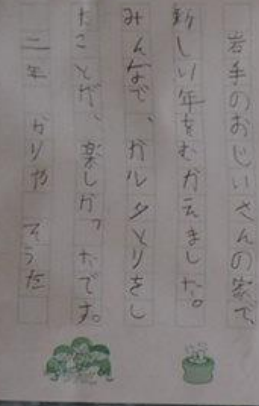 岩手のおじいさんの家で、
新しい年をむかえました。
みんなで、カルタとりをし
たことが、楽しかったです。
二年 かりや そうた